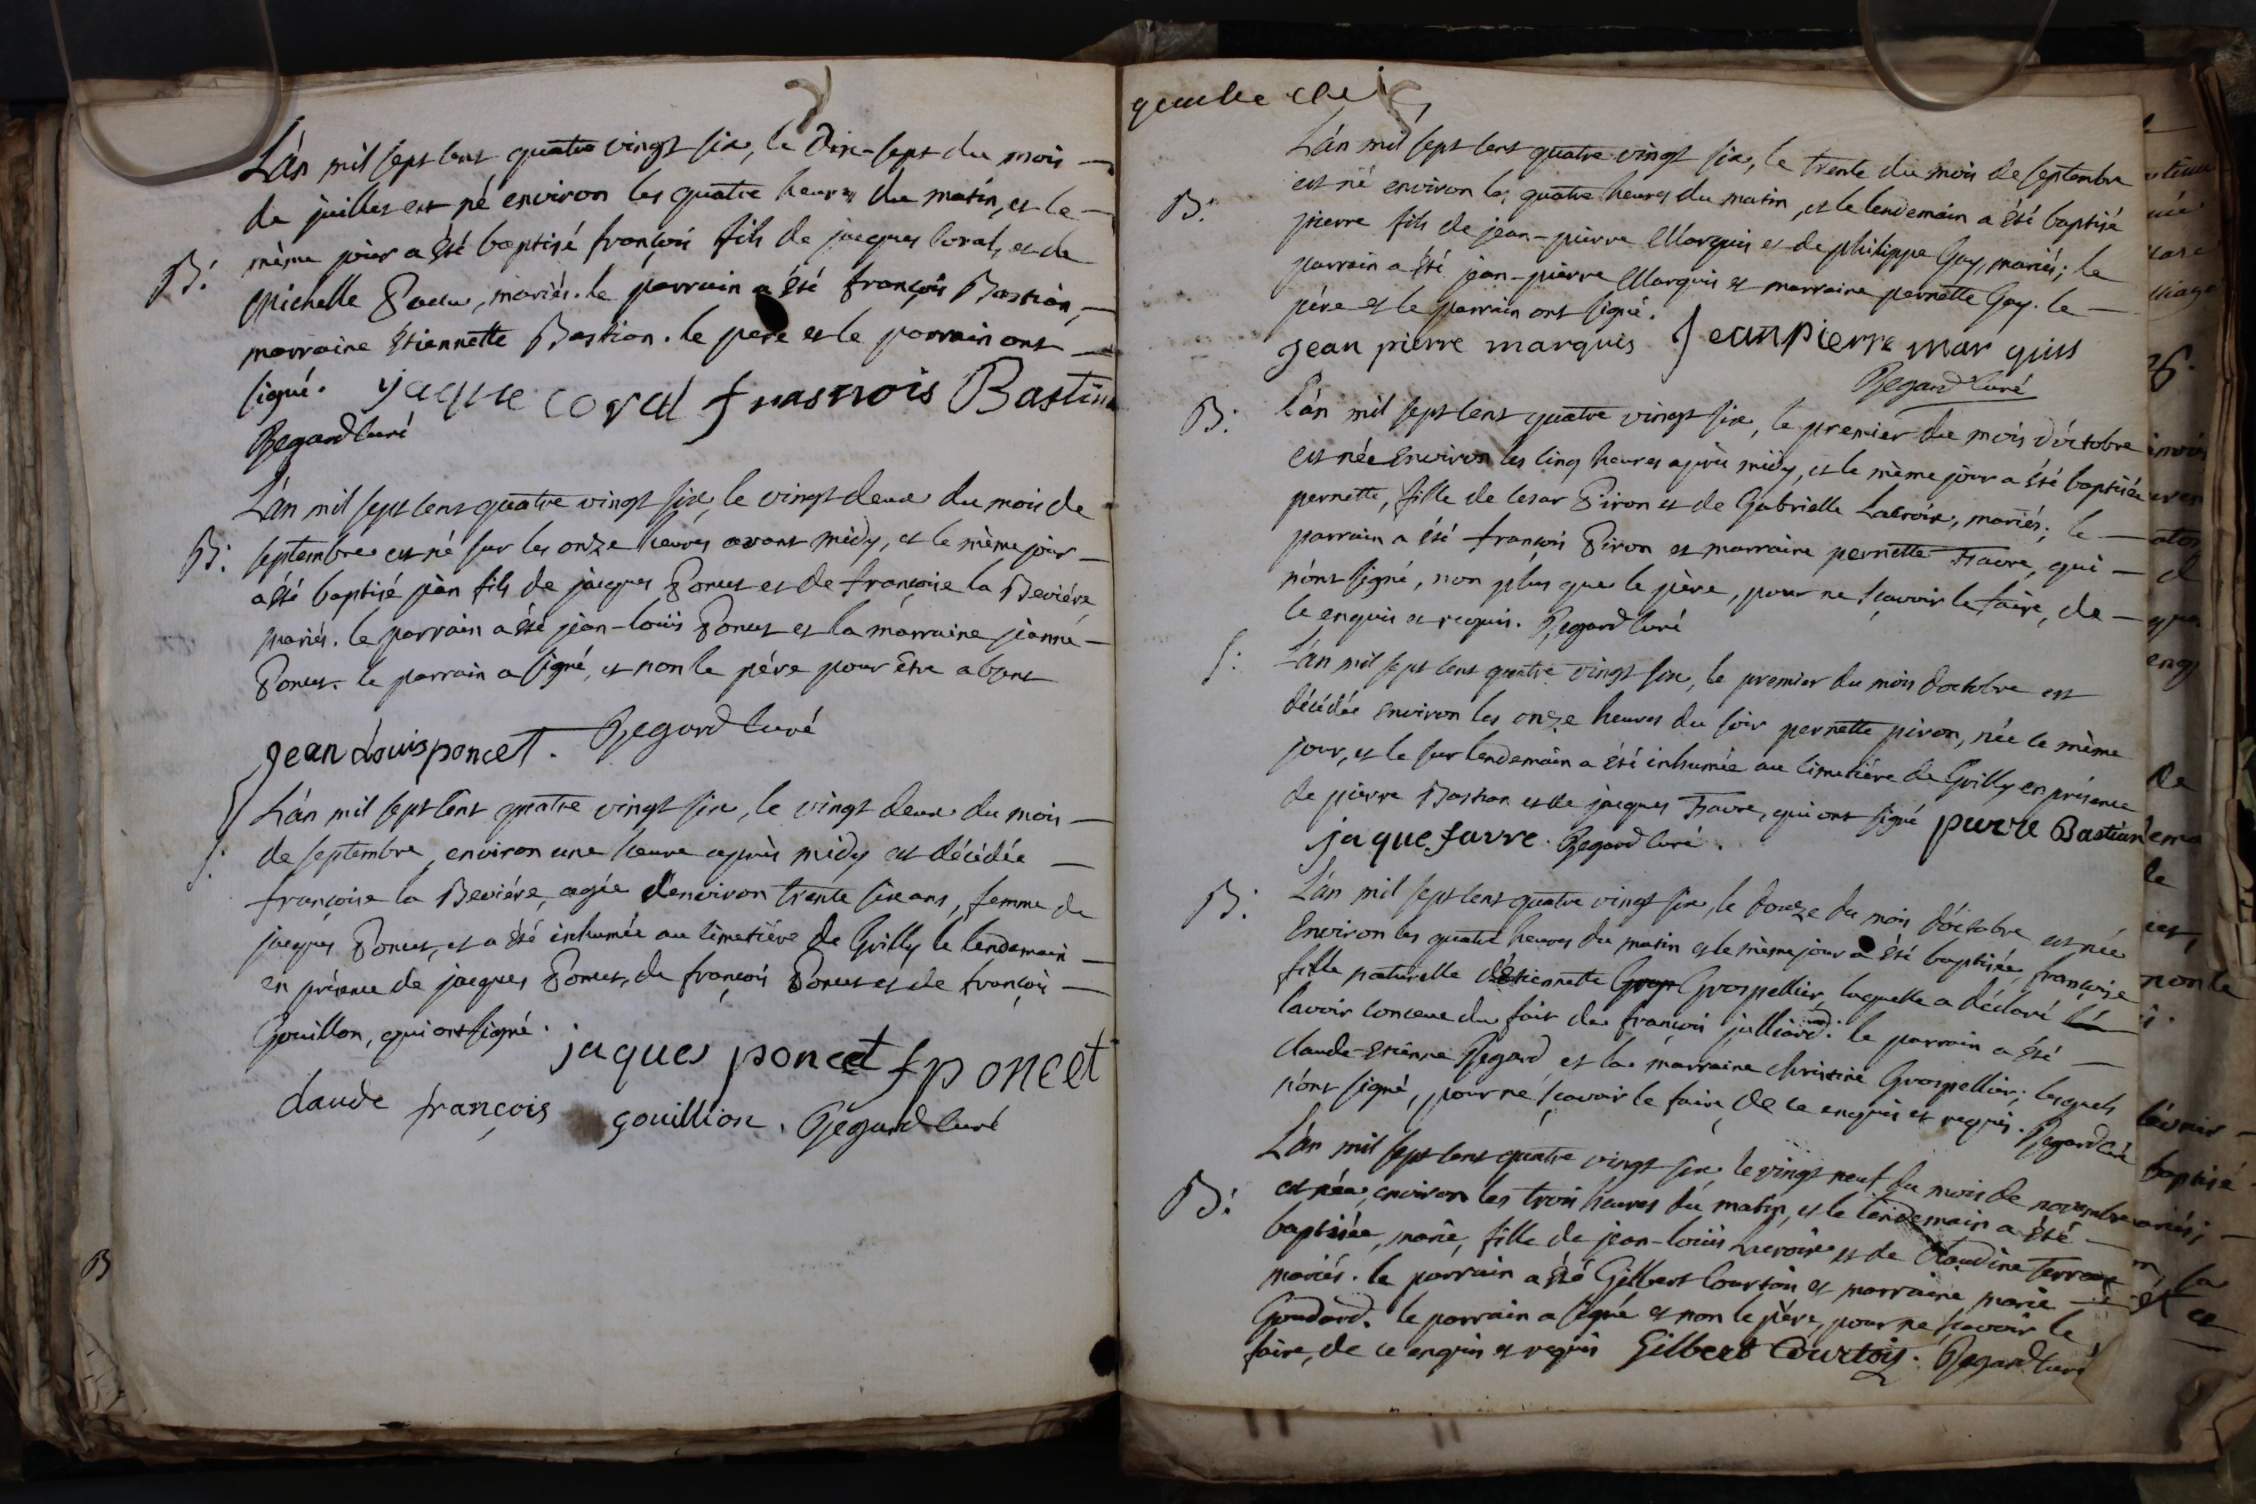 L'an mil sept cent quatre vingt six, le dix-sept du mois
de juillet est né environ les quatre heures du matin, et le
B: même jour a été baptisé françois fils de jacques Coral, et de
Michelle Pacu, mariés. le parrain a été françois Bastian,
marraine Etiennette Bastian. le pere et le parrain ont
signé. jaque coral fransnois Bastin
Regard Curé
L'an mil sept cent quatre vingt six, le vingt deux du mois de
B: septembre est né sur les onze heures avant midy, et le même jour
a été baptisé jean fils de jacques Poncet et de françoise la Beviére
mariés. le parrain a été jean-loüis Poncet et la marraine jeanne
Poncet. le parrain a signé, et non le pére pour être absent
Jean Louis poncet. Regard Curé
L'an mil sept cent quatre vingt six, le vingt deux du mois
S: de septembre, environ une heure après midy est décédée
françoise la Beviére, agée d'environ trente six ans, femme de
jacques Poncet, et a été inhumée au cimetiére de Grilly le lendemain
en présence de jacques Poncet, de françois Poncet et de françois
Gouillon, qui ont signé. jaques poncet f poncet
claude françois gouillion. Regard Curé
B
L'an mil sept cent quatre vingt six, le trente du mois de septembre
B: est né environ les quatre heures du matin, et le lendemain a été baptisé
pierre fils de jean-pierre Marquis et de philippe Gay, mariés; le
parrain a été jean-pierre Marquis et marraine pernette Gay. le
pére et le parrain ont signé.
Jean pierre marquis Jean pierre mar quis
Regard Curé
B: L'an mil sept cent quatre vingt six, le premier du mois d'octobre
est née environ les cinq heures après midy, et le même jour a été baptisée
pernette, fille de Cesar Piron et de Gabrielle Lacroix, mariés; le
parrain a été françois Piron et marraine pernette Favre, qui
n'ont signé, non plus que le père, pour ne sçavoir le faire, de
ce enquis et requis. Regard Curé
S: L'an mil sept cent quatre vingt six, le premier du mois d'octobre est
décédée environ les onze heures du soir pernette piron, née le même
jour, et le surlendemain a été inhumée au cimetiére de Grilly en présence
de pierre Bastian et de jacques Favre, qui ont signé pierre Bastian
jaque favre. Regard Curé.
B: L'an mil sept cent quatre vingt six, le douze du mois d'octobre est née
environ les quatre heures du matin et le même jour a été baptisée françoise
fille naturelle d'étiennette Grop Grospellier, laquelle a déclaré
l'avoir conceue du fait de françois julliard. le parrain a été
claude-Etiénne Regard et la marraine christine Grospellier; lesquels
n'ont signé, pour ne sçavoir le faire, de ce enquis et requis. Regard Curé
L'an mil sept cent quatre vingt six, le vingt neuf du mois de novembre
B: est née, environ les trois heures du matin, et le lendemain a été
baptisée, marie, fille de jean-loüis Lacroix et de Claudine Terroux
mariés. le parrain a été Gilbert Courtois et marraine marie
Goudard. le parrain a signé et non le père, pour ne sçavoir le
faire, de ce enquis et requis Gilbert Courtois. Regard Curé